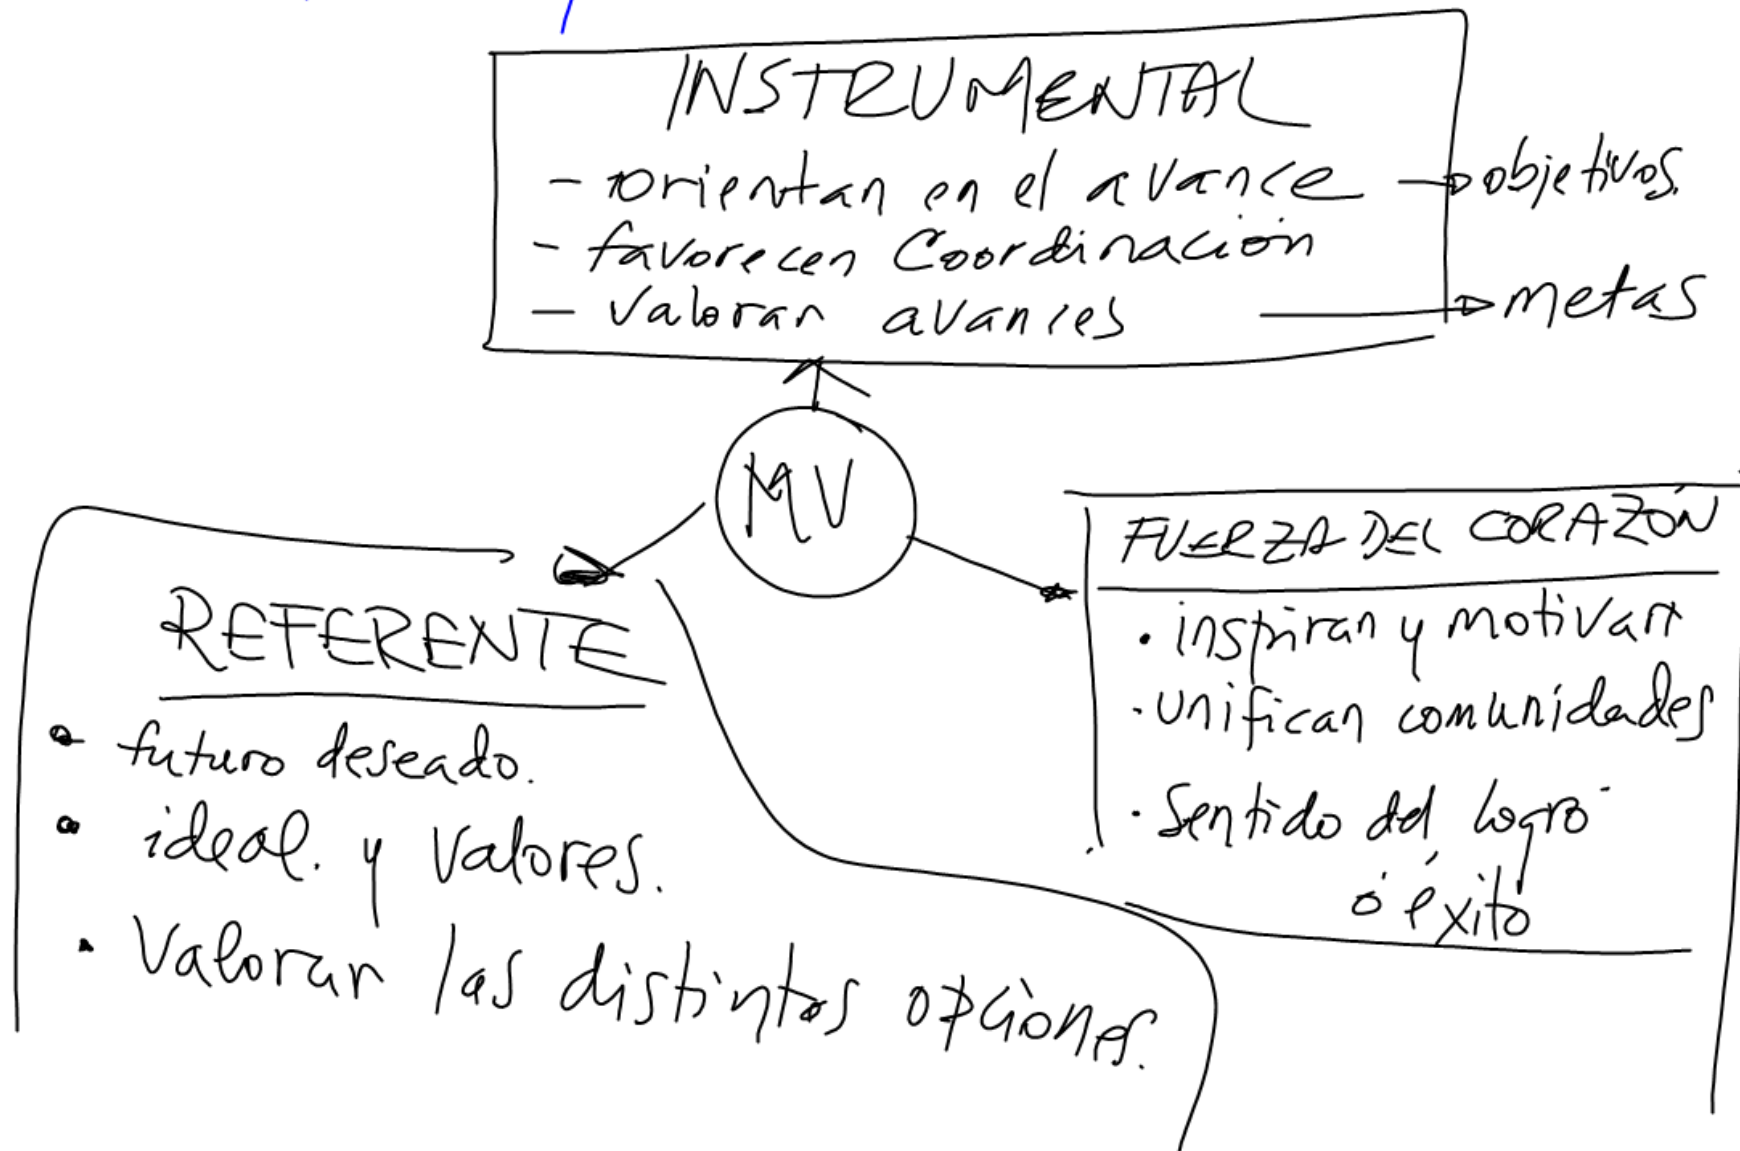 INSTRUMENTAL
- orientan en el avance → objetivos.
- favorecen Coordinación
- Valoran avances → metas
MV
REFERENTE
• futuro deseado.
• ideal. y Valores.
• Valorar las distintas opciones.
FUERZA DEL CORAZÓN
• inspiran y motivan
• unifican comunidades
• Sentido del logro
ó éxito